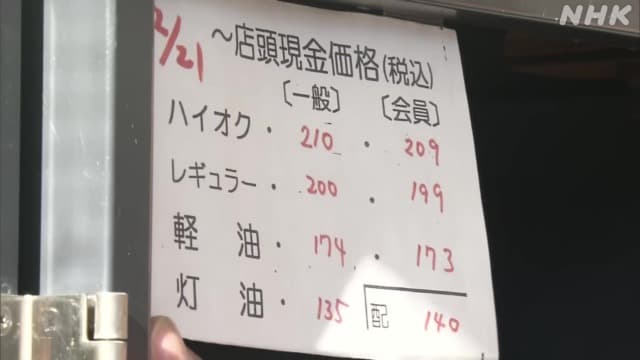 NHK
2/21
～店頭現金価格(税込)
〔一般〕 〔会員〕
ハイオク・ 210 ・ 209
レギュラー・ 200 ・ 199
軽 油・ 174 ・ 173
灯 油・ 135 配 140